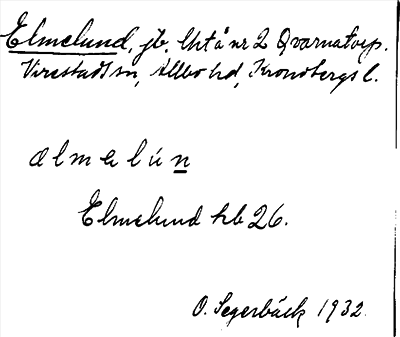 Elmelund, jb, Urtå nr 2 Qvarnatorp.
Virestads sn, Allbo hd, Kronobergs l.
ælmelún
Elmelund hb 26.
O. Segerbäck 1932